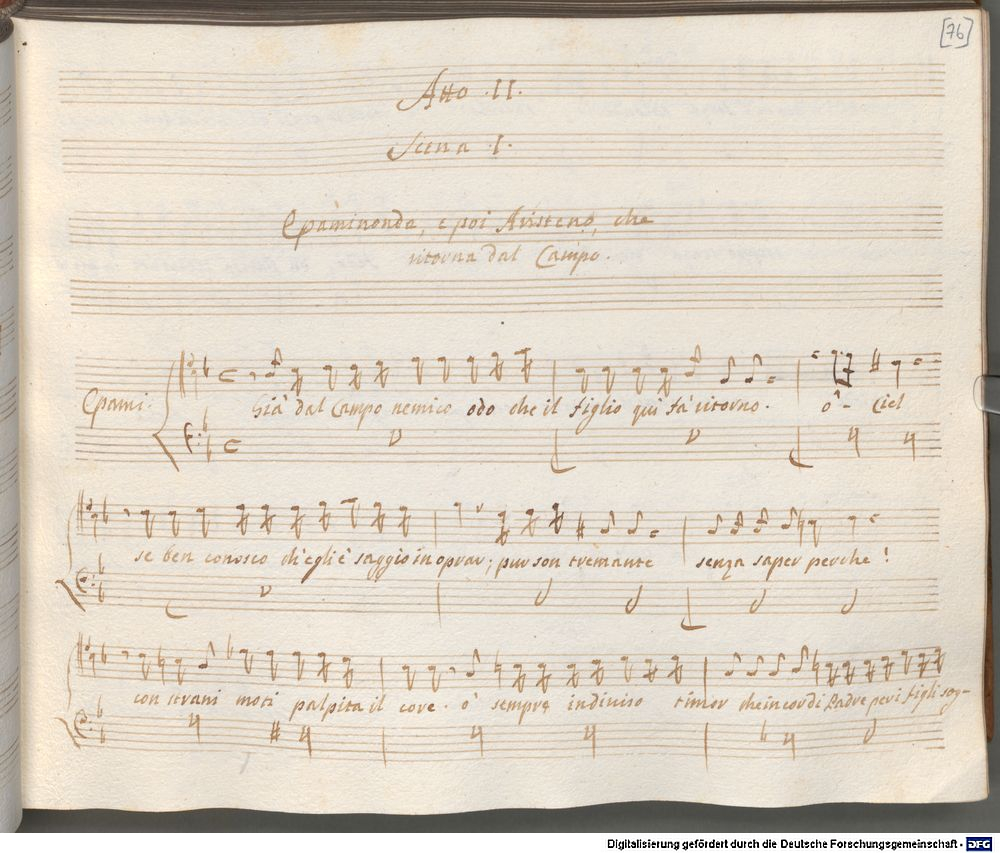 [76]
Atto .II.
Scena .I.
Epaminonda, e poi Aristeno, che
ritorna dal Campo.
Epami.
Già dal Campo nemico odo che il figlio quì fà ritorno. ò - Ciel
se ben conosco ch'egli è saggio in oprar; pur son tremante senza saper perche!
con strani moti palpita il core. ò sempre indiviso timor che in cor di Padre per i figli sog-
Digitalisierung gefördert durch die Deutsche Forschungsgemeinschaft - DFG